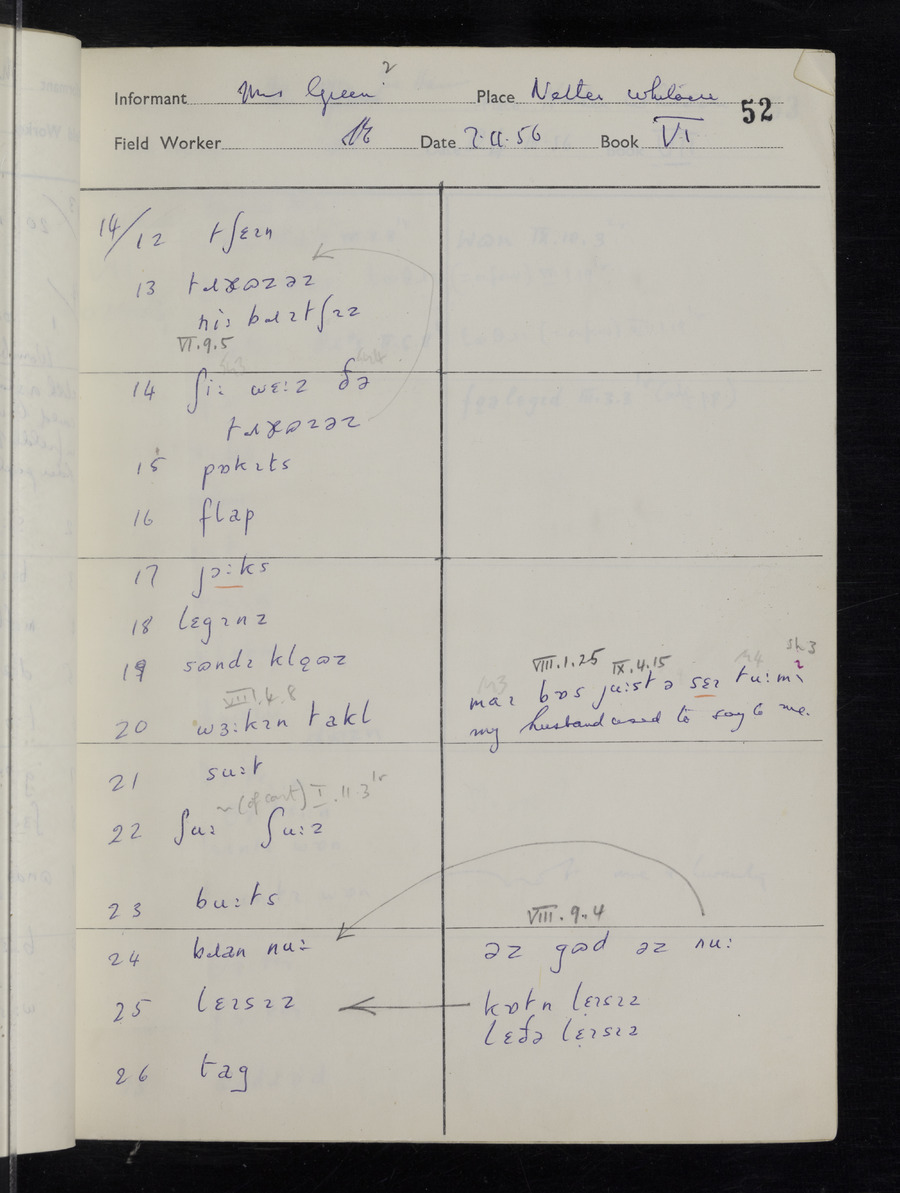 2
Informant Mrs Green Place Nether
52
Field Worker Date 7.11.56 Book VI
14/12 tʃɛɪn
13
VI.9.5
14 ʃiː wɛːz ðə
15 pɒkɪts
16 flap
17 jɔːks
18 lɛgɪnz
19
VIII.1.25 IX.4.15
sh 3
maɪ bɒs juːst ə sɛɪ tuː mɪ
my husband used to say to me.
VIII.4.8
20 wɜːkɪn takl
21 suːt
~ (of cart) I.11.3
22 ʃuː ʃuːz
23 buːts
VIII.9.4
24 nuː əz gʊd əz nuː
25 lɛɪsɪz kɒtn lɛɪsɪz
lɛðə lɛɪsɪz
26 tag